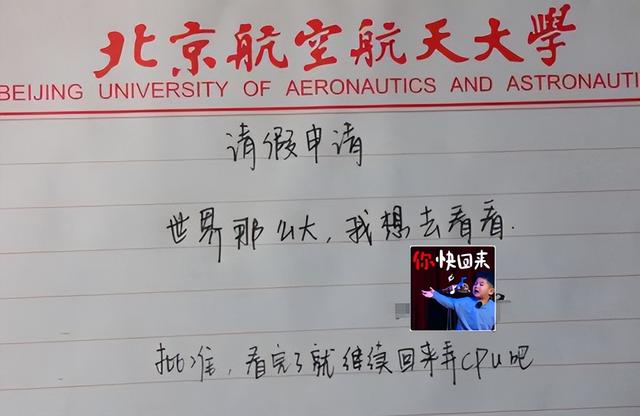 北京航空航天大學
BEIJING UNIVERSITY OF AERONAUTICS AND ASTRONAUTI
请假申请
世界那么大，我想去看看.
你快回来
批准，看完了就继续回来弄cpu吧